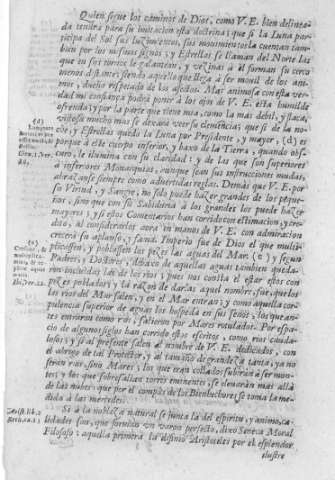 Quien sigue los caminos de Dios, como V. E. bien delinea-
da tendrà para su imitacion esta doctrina; que si la Luna par-
ticipa del Sol sus lucimientos, sus movimientos la cuentan tam-
bien por los mismos signos; y Estrellas se llaman del Norte las
que en sus tornos le galantean, y vezinas à él forman su cerco
menos distante; siendo aquello que llega à ser movil de los ani-
mos, dueño respetado de los afectos. Mas animosa con esta ver-
dad mi confiança podrà poner à los ojos de V. E. esta humilde
ofrenda; y por la parte que tiene mia, como la mas debil, y flaca,
mucho mas se deverà à sus clemencias; que si de la no-
che, y Estrellas quedò la Luna por Presidente, y mayor, (d) es
porque à este cuerpo inferior, y baxo de la Tierra, quando obs-
curo, le ilumina con su claridad: y de las que son superiores
à inferiores Monarquias, aunque sean sus instrucciones mudas,
abraçanse siempre como advertidas reglas. Demàs que V. E. por
su Virtud, y Sangre, no solo puede hazer grandes de los peque-
ños, sino que con su Sabiduria à los grandes los puede hazer
mayores; y si estos Comentarios han corrido con estimacion, y cre-
dito, al considerarlos aora en manos de V. E. con admiracion
crecerà su aplauso, y fama. Imperio fue de Dios el que multi-
plicassen, y poblassen los pezes las aguas del Mar. (e) y segun
Padres, y Doctores, debaxo de aquellas aguas tambien queda-
ron incluidas las de los rios; pues nos consta el estar estos con
pezes poblados; y la razon de darlas aquel nombre, fue; que los
rios del Mar salen, y en el Mar entran; y como aquella cor-
pulencia superior de aguas los hospeda en sus senos, los que an-
tes entraron como rios, salieron por Mares rotulados. Por espa-
cio de algunos siglos han corrido estos escritos, como rios cauda-
losos; y si al presente salen al nombre de V. E. dedicados, con
el abrigo de tal Protector, y al tamaño de grandeza tanta, ya no
seràn rios, sino Mares; los que eran collados subiràn à ser mon-
tes; y los que sobresalian torres eminentes, se elevaràn mas allà
de las nubes: que por el compàs de los Bienhechores se toma la me-
dida à las mercedes.
Si à la nobleza natural se junta la del espiritu, y animo, ca-
lidades son, que forman un varon perfecto, dixo Seneca Moral
Filosofo: aquella primera la definio Aristoteles por el esplendor
ilustre
(d)
(e)